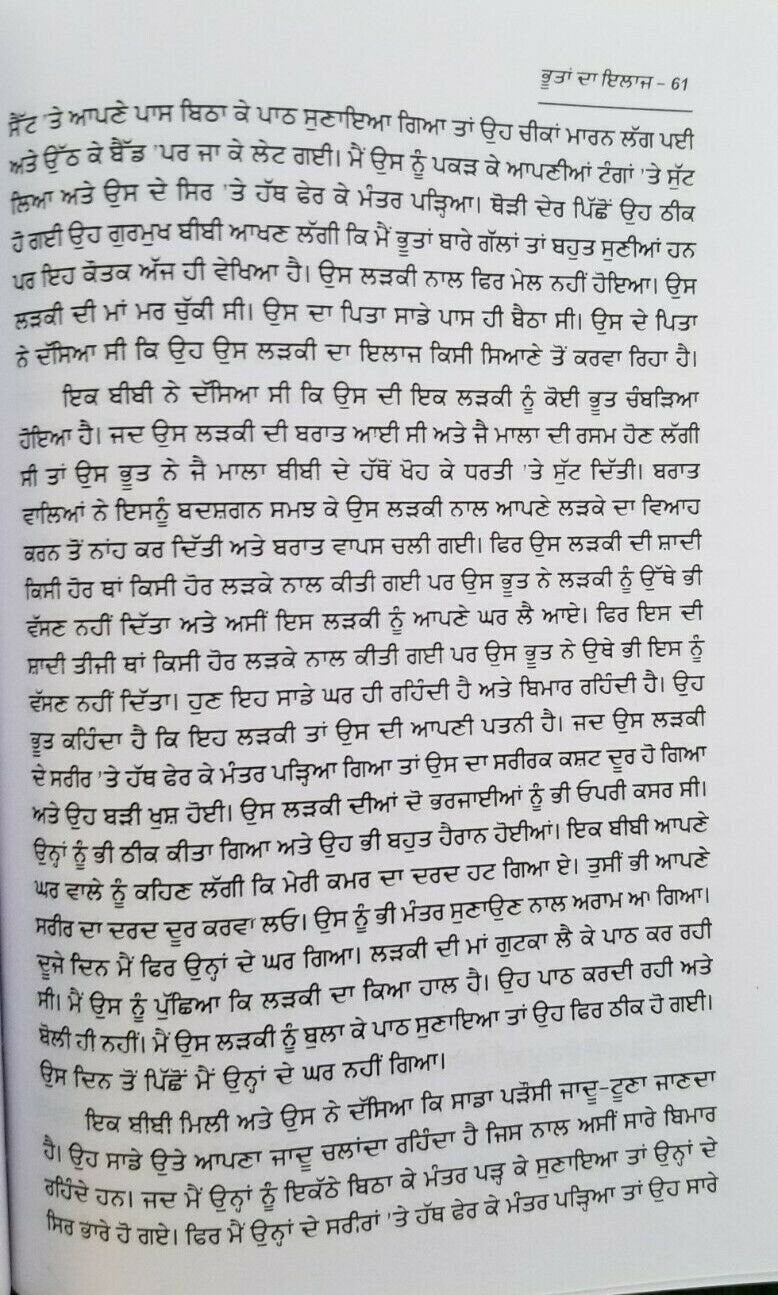 ਭੂਤਾਂ ਦਾ ਇਲਾਜ – 61
ਸੈੱਟ 'ਤੇ ਆਪਣੇ ਪਾਸ ਬਿਠਾ ਕੇ ਪਾਠ ਸੁਣਾਇਆ ਗਿਆ ਤਾਂ ਉਹ ਚੀਕਾਂ ਮਾਰਨ ਲੱਗ ਪਈ
ਅਤੇ ਉੱਠ ਕੇ ਬੈੱਡ 'ਪਰ ਜਾ ਕੇ ਲੇਟ ਗਈ। ਮੈਂ ਉਸ ਨੂੰ ਪਕੜ ਕੇ ਆਪਣੀਆਂ ਟੰਗਾਂ 'ਤੇ ਸੁੱਟ
ਲਿਆ ਅਤੇ ਉਸ ਦੇ ਸਿਰ 'ਤੇ ਹੱਥ ਫੇਰ ਕੇ ਮੰਤਰ ਪੜ੍ਹਿਆ। ਥੋੜੀ ਦੇਰ ਪਿੱਛੋਂ ਉਹ ਠੀਕ
ਹੋ ਗਈ ਉਹ ਗੁਰਮੁਖ ਬੀਬੀ ਆਖਣ ਲੱਗੀ ਕਿ ਮੈਂ ਭੂਤਾਂ ਬਾਰੇ ਗੱਲਾਂ ਤਾਂ ਬਹੁਤ ਸੁਣੀਆਂ ਹਨ
ਪਰ ਇਹ ਕੋਤਕ ਅੱਜ ਹੀ ਵੇਖਿਆ ਹੈ। ਉਸ ਲੜਕੀ ਨਾਲ ਫਿਰ ਮੇਲ ਨਹੀਂ ਹੋਇਆ। ਉਸ
ਲੜਕੀ ਦੀ ਮਾਂ ਮਰ ਚੁੱਕੀ ਸੀ। ਉਸ ਦਾ ਪਿਤਾ ਸਾਡੇ ਪਾਸ ਹੀ ਬੈਠਾ ਸੀ। ਉਸ ਦੇ ਪਿਤਾ
ਨੇ ਦੱਸਿਆ ਸੀ ਕਿ ਉਹ ਉਸ ਲੜਕੀ ਦਾ ਇਲਾਜ ਕਿਸੀ ਸਿਆਣੇ ਤੋਂ ਕਰਵਾ ਰਿਹਾ ਹੈ।
ਇਕ ਬੀਬੀ ਨੇ ਦੱਸਿਆ ਸੀ ਕਿ ਉਸ ਦੀ ਇਕ ਲੜਕੀ ਨੂੰ ਕੋਈ ਭੂਤ ਚੰਬੜਿਆ
ਹੋਇਆ ਹੈ। ਜਦ ਉਸ ਲੜਕੀ ਦੀ ਬਰਾਤ ਆਈ ਸੀ ਅਤੇ ਜੈ ਮਾਲਾ ਦੀ ਰਸਮ ਹੋਣ ਲੱਗੀ
ਸੀ ਤਾਂ ਉਸ ਭੂਤ ਨੇ ਜੈ ਮਾਲਾ ਬੀਬੀ ਦੇ ਹੱਥੋਂ ਖੋਹ ਕੇ ਧਰਤੀ 'ਤੇ ਸੁੱਟ ਦਿੱਤੀ। ਬਰਾਤ
ਵਾਲਿਆਂ ਨੇ ਇਸਨੂੰ ਬਦਸ਼ਗਨ ਸਮਝ ਕੇ ਉਸ ਲੜਕੀ ਨਾਲ ਆਪਣੇ ਲੜਕੇ ਦਾ ਵਿਆਹ
ਕਰਨ ਤੋਂ ਨਾਂਹ ਕਰ ਦਿੱਤੀ ਅਤੇ ਬਰਾਤ ਵਾਪਸ ਚਲੀ ਗਈ। ਫਿਰ ਉਸ ਲੜਕੀ ਦੀ ਸ਼ਾਦੀ
ਕਿਸੀ ਹੋਰ ਥਾਂ ਕਿਸੀ ਹੋਰ ਲੜਕੇ ਨਾਲ ਕੀਤੀ ਗਈ ਪਰ ਉਸ ਭੂਤ ਨੇ ਲੜਕੀ ਨੂੰ ਉੱਥੇ ਭੀ
ਵੱਸਣ ਨਹੀਂ ਦਿੱਤਾ ਅਤੇ ਅਸੀਂ ਇਸ ਲੜਕੀ ਨੂੰ ਆਪਣੇ ਘਰ ਲੈ ਆਏ। ਫਿਰ ਇਸ ਦੀ
ਸ਼ਾਦੀ ਤੀਜੀ ਥਾਂ ਕਿਸੀ ਹੋਰ ਲੜਕੇ ਨਾਲ ਕੀਤੀ ਗਈ ਪਰ ਉਸ ਭੂਤ ਨੇ ਉਥੇ ਭੀ ਇਸ ਨੂੰ
ਵੱਸਣ ਨਹੀਂ ਦਿੱਤਾ। ਹੁਣ ਇਹ ਸਾਡੇ ਘਰ ਹੀ ਰਹਿੰਦੀ ਹੈ ਅਤੇ ਬਿਮਾਰ ਰਹਿੰਦੀ ਹੈ। ਉਹ
ਭੂਤ ਕਹਿੰਦਾ ਹੈ ਕਿ ਇਹ ਲੜਕੀ ਤਾਂ ਉਸ ਦੀ ਆਪਣੀ ਪਤਨੀ ਹੈ। ਜਦ ਉਸ ਲੜਕੀ
ਦੇ ਸਰੀਰ 'ਤੇ ਹੱਥ ਫੇਰ ਕੇ ਮੰਤਰ ਪੜ੍ਹਿਆ ਗਿਆ ਤਾਂ ਉਸ ਦਾ ਸਰੀਰਕ ਕਸ਼ਟ ਦੂਰ ਹੋ ਗਿਆ
ਅਤੇ ਉਹ ਬੜੀ ਖੁਸ਼ ਹੋਈ। ਉਸ ਲੜਕੀ ਦੀਆਂ ਦੋ ਭਰਜਾਈਆਂ ਨੂੰ ਭੀ ਓਪਰੀ ਕਸਰ ਸੀ।
ਉਨ੍ਹਾਂ ਨੂੰ ਭੀ ਠੀਕ ਕੀਤਾ ਗਿਆ ਅਤੇ ਉਹ ਭੀ ਬਹੁਤ ਹੈਰਾਨ ਹੋਈਆਂ। ਇਕ ਬੀਬੀ ਆਪਣੇ
ਘਰ ਵਾਲੇ ਨੂੰ ਕਹਿਣ ਲੱਗੀ ਕਿ ਮੇਰੀ ਕਮਰ ਦਾ ਦਰਦ ਹਟ ਗਿਆ ਏ। ਤੁਸੀਂ ਭੀ ਆਪਣੇ
ਸਰੀਰ ਦਾ ਦਰਦ ਦੂਰ ਕਰਵਾ ਲਓ। ਉਸ ਨੂੰ ਭੀ ਮੰਤਰ ਸੁਣਾਉਣ ਨਾਲ ਅਰਾਮ ਆ ਗਿਆ।
ਦੂਜੇ ਦਿਨ ਮੈਂ ਫਿਰ ਉਨ੍ਹਾਂ ਦੇ ਘਰ ਗਿਆ। ਲੜਕੀ ਦੀ ਮਾਂ ਗੁਟਕਾ ਲੈ ਕੇ ਪਾਠ ਕਰ ਰਹੀ
ਸੀ। ਮੈਂ ਉਸ ਨੂੰ ਪੁੱਛਿਆ ਕਿ ਲੜਕੀ ਦਾ ਕਿਆ ਹਾਲ ਹੈ। ਉਹ ਪਾਠ ਕਰਦੀ ਰਹੀ ਅਤੇ
ਬੋਲੀ ਹੀ ਨਹੀਂ। ਮੈਂ ਉਸ ਲੜਕੀ ਨੂੰ ਬੁਲਾ ਕੇ ਪਾਠ ਸੁਣਾਇਆ ਤਾਂ ਉਹ ਫਿਰ ਠੀਕ ਹੋ ਗਈ।
ਉਸ ਦਿਨ ਤੋਂ ਪਿੱਛੋਂ ਮੈਂ ਉਨ੍ਹਾਂ ਦੇ ਘਰ ਨਹੀਂ ਗਿਆ।
ਇਕ ਬੀਬੀ ਮਿਲੀ ਅਤੇ ਉਸ ਨੇ ਦੱਸਿਆ ਕਿ ਸਾਡਾ ਪੜੌਸੀ ਜਾਦੂ-ਟੂਣਾ ਜਾਣਦਾ
ਹੈ। ਉਹ ਸਾਡੇ ਉਤੇ ਆਪਣਾ ਜਾਦੂ ਚਲਾਂਦਾ ਰਹਿੰਦਾ ਹੈ ਜਿਸ ਨਾਲ ਅਸੀਂ ਸਾਰੇ ਬਿਮਾਰ
ਰਹਿੰਦੇ ਹਨ। ਜਦ ਮੈਂ ਉਨ੍ਹਾਂ ਨੂੰ ਇਕੱਠੇ ਬਿਠਾ ਕੇ ਮੰਤਰ ਪੜ੍ਹ ਕੇ ਸੁਣਾਇਆ ਤਾਂ ਉਨ੍ਹਾਂ ਦੇ
ਸਿਰ ਭਾਰੇ ਹੋ ਗਏ। ਫਿਰ ਮੈਂ ਉਨ੍ਹਾਂ ਦੇ ਸਰੀਰਾਂ 'ਤੇ ਹੱਥ ਫੇਰ ਕੇ ਮੰਤਰ ਪੜ੍ਹਿਆ ਤਾਂ ਉਹ ਸਾਰੇ